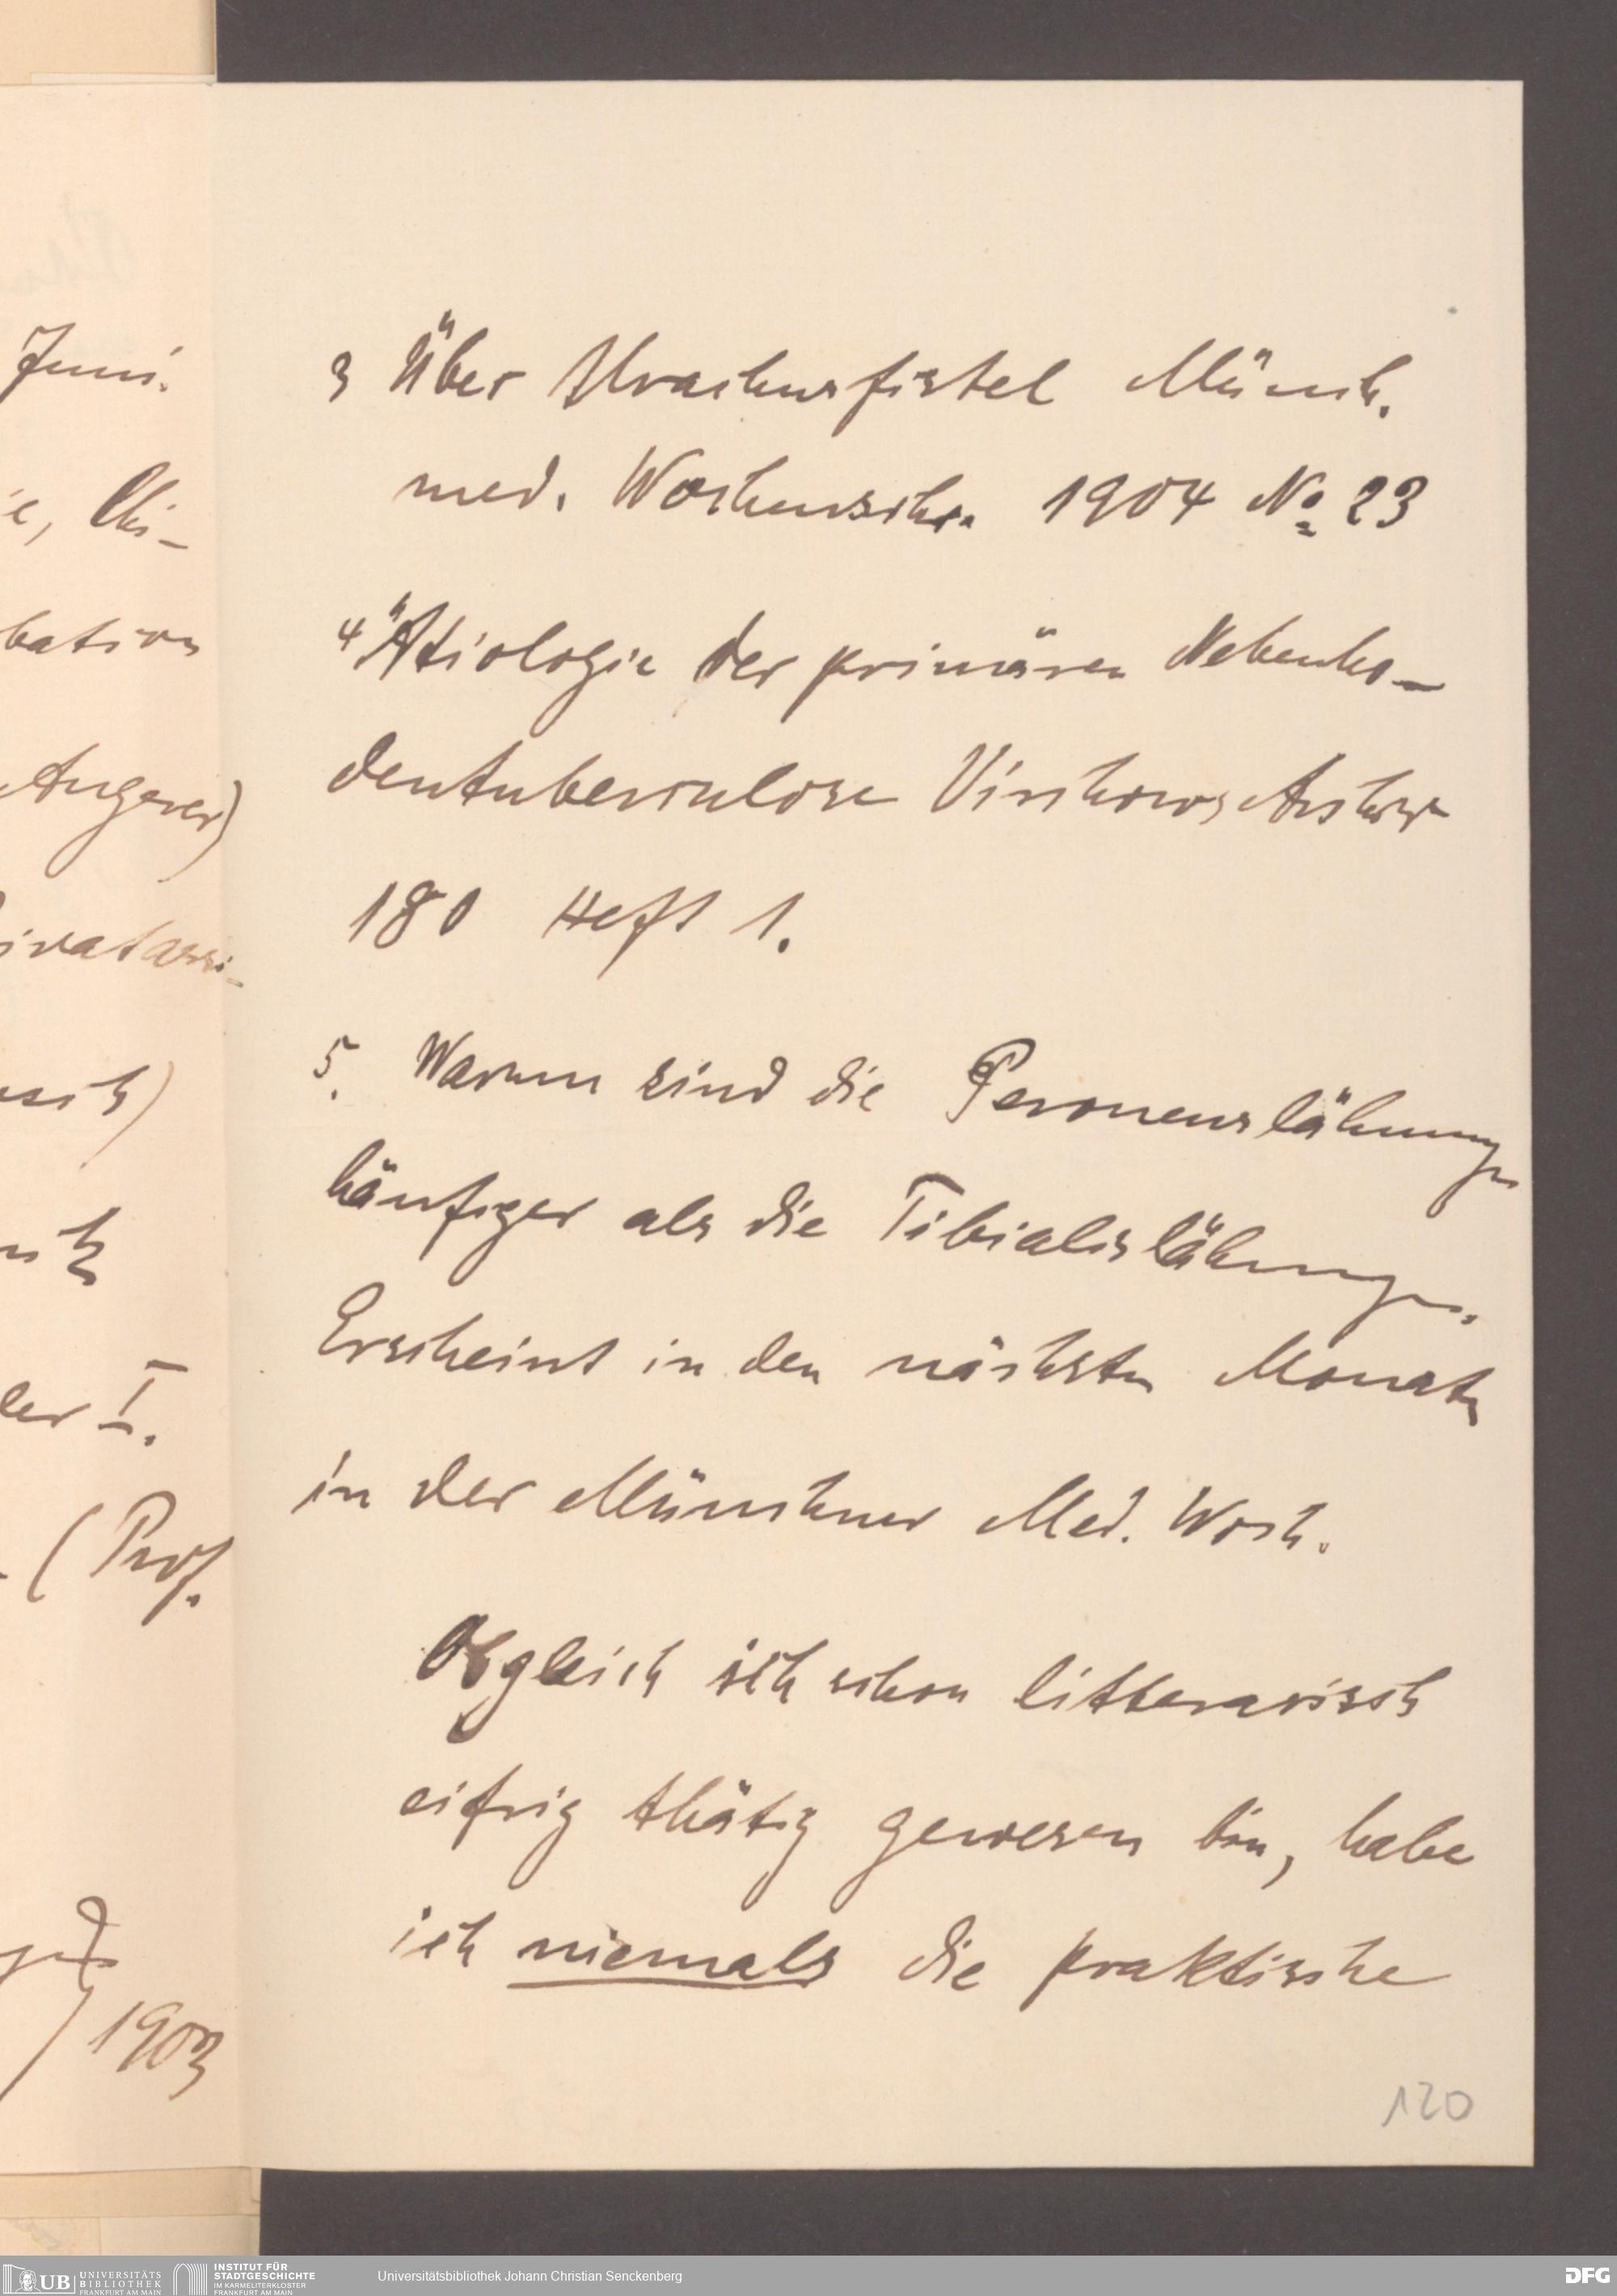 Juni.
3 Über Urachusfistel Münch.
med. Wochenschr. 1904 No 23
4 Ätiologie der primären Nebenho-
dentuberculose Virchows Archiv
180 Heft 1.
5. Warum sind die Peroneuslähmungen
häufiger als die Tibialislähmungen.
Erscheint in den nächsten Monaten
in der Münchner Med. Woch.
Obgleich ich schon litterarisch
eifrig thätig gewesen bin, habe
ich niemals die praktische
120
bation
Angerer)
ivatassi-
der I.
(Prof.
1903
UB UNIVERSITÄTS
BIBLIOTHEK
FRANKFURT AM MAIN
INSTITUT FÜR
STADTGESCHICHTE
IM KARMELITERKLOSTER
FRANKFURT AM MAIN
Universitätsbibliothek Johann Christian Senckenberg
DFG